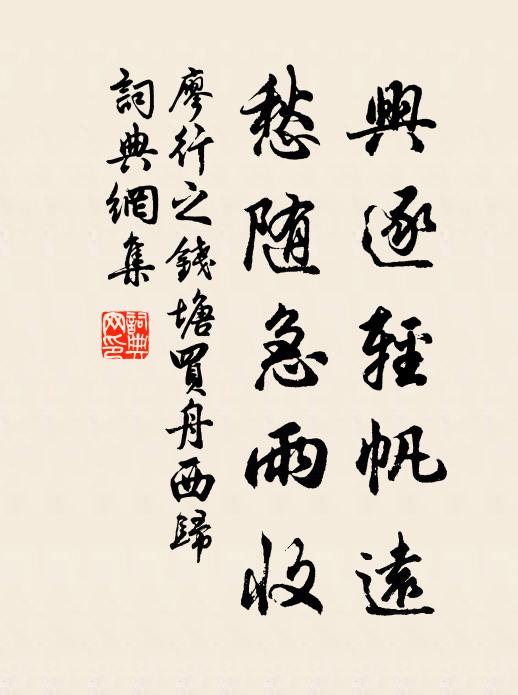 興逐輕帆遠
愁随急雨收
廖行之錢塘買舟西歸
詞典網集
詞典
网印